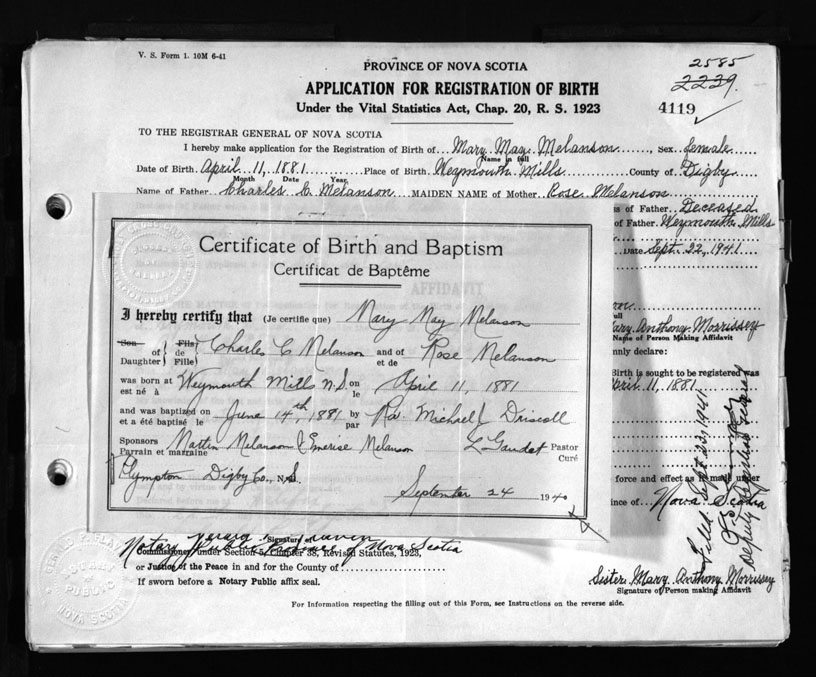 V. S. Form 1. 10M 6-41
2585
2239.
PROVINCE OF NOVA SCOTIA
APPLICATION FOR REGISTRATION OF BIRTH
Under the Vital Statistics Act, Chap. 20, R. S. 1923
4119
TO THE REGISTRAR GENERAL OF NOVA SCOTIA
I hereby make application for the Registration of Birth of Mary May Melanson, Sex female
Name in full
Date of Birth April 11, 1881 Place of Birth Weymouth Mills County of Digby
Month Date Year
Name of Father Charles C Melanson MAIDEN NAME of Mother Rose Melanson
of Father Deceased
of Father Weymouth Mills
Date Sept. 22, 1941
Certificate of Birth and Baptism
Certificat de Baptême
I hereby certify that (Je certifie que) Mary May Melanson
Son of Fils de Charles C Melanson and of Rose Melanson
Daughter Fille et de
was born at Weymouth Mills N.S. on April 11, 1881
est né à le
and was baptized on June 14th, 1881 by Rev Michael J Driscoll
et a été baptisé le par
Sponsors Martin Melanson & Emerise Melanson L Gaudet Pastor
Parrain et marraine Curé
Plympton Digby Co., N.S.
September 24 1940
Mary Anthony Morrissey
Name of Person Making Affidavit
nnly declare:
Birth is sought to be registered was
April 11, 1881
force and effect as if made under
ince of Nova Scotia
Filed Sept 23, 1941
Deputy Registrar General
Signature
Notary Public Nova Scotia
Commissioner under Section 5, Chapter 38, Revised Statutes, 1923,
or Justice of the Peace in and for the County of
if sworn before a Notary Public affix seal.
Sister Mary Anthony Morrissey
Signature of Person making Affidavit
For Information respecting the filling out of this Form, see Instructions on the reverse side.
NOTARY PUBLIC
NOVA SCOTIA